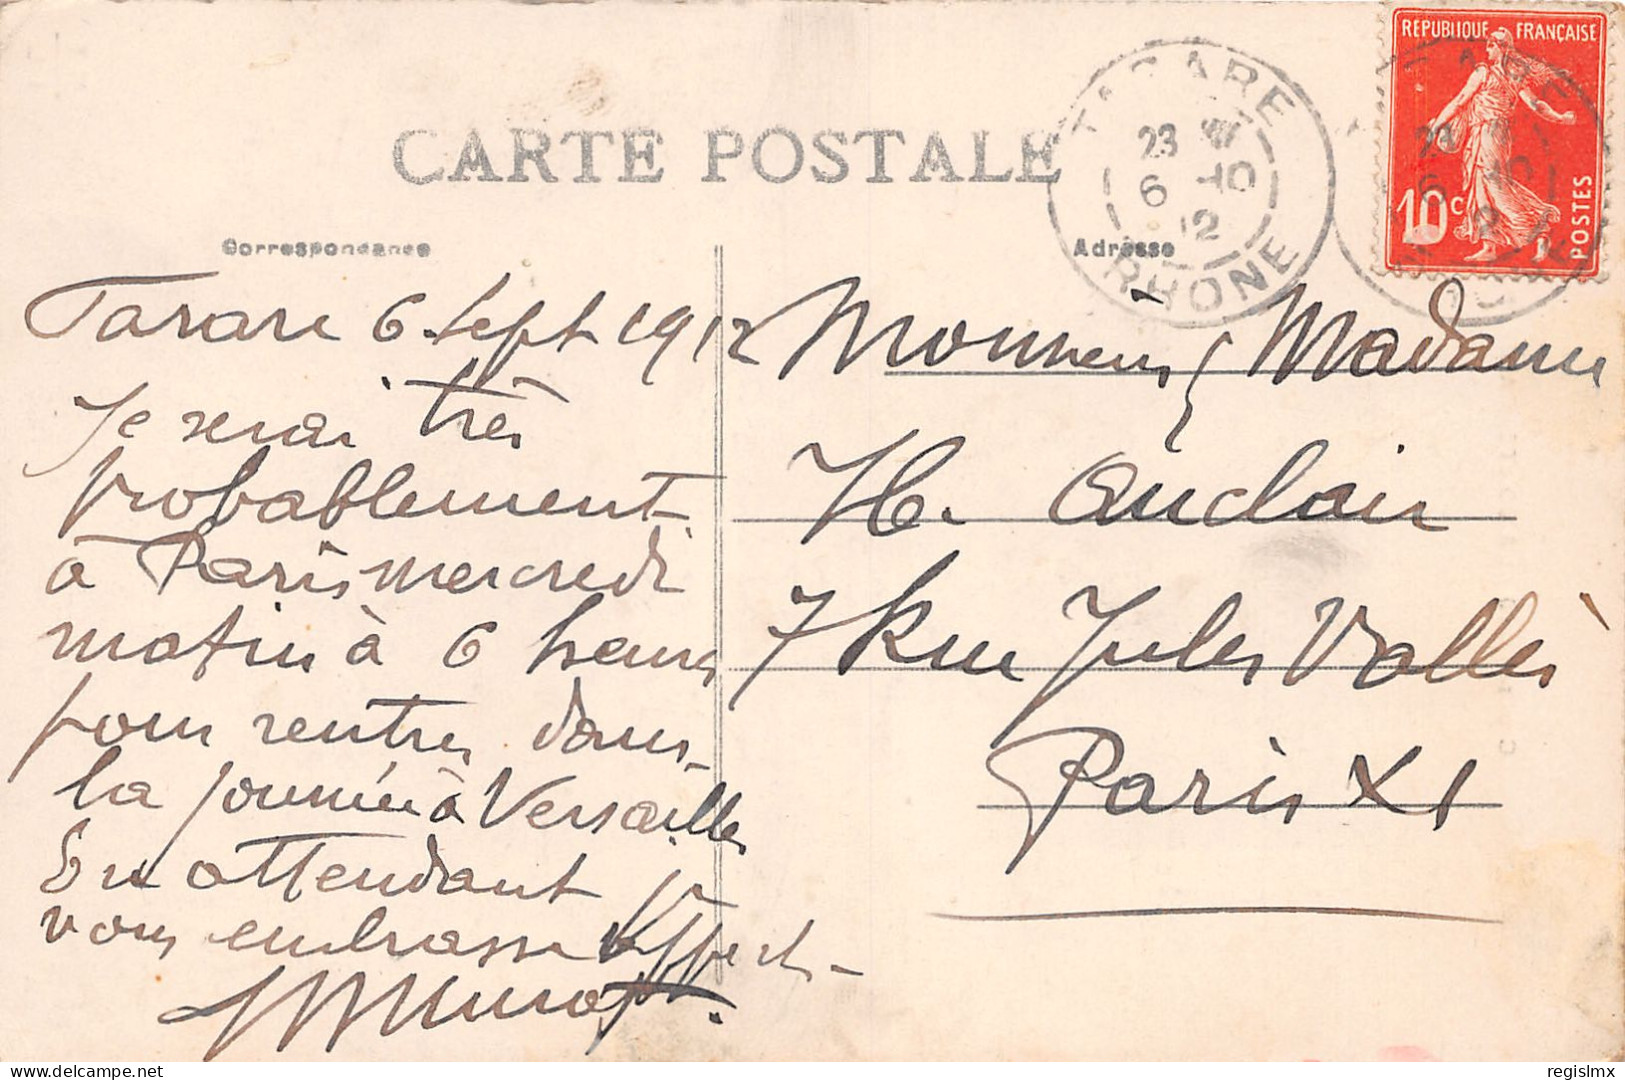 CARTE POSTALE
Correspondance
Adresse
TARARE
23
6 -10
12
RHONE
REPUBLIQUE FRANÇAISE
10c
POSTES
Tarare 6 Sept 1912
Je serai très
probablement
à Paris mercredi
matin à 6 heures
pour rentrer dans
la journée à Versailles
En attendant
vous embrasse
Monsieur & Madame
H. Auclair
7 Rue Jules Vallès
Paris XI
delcampe.net
regislmx